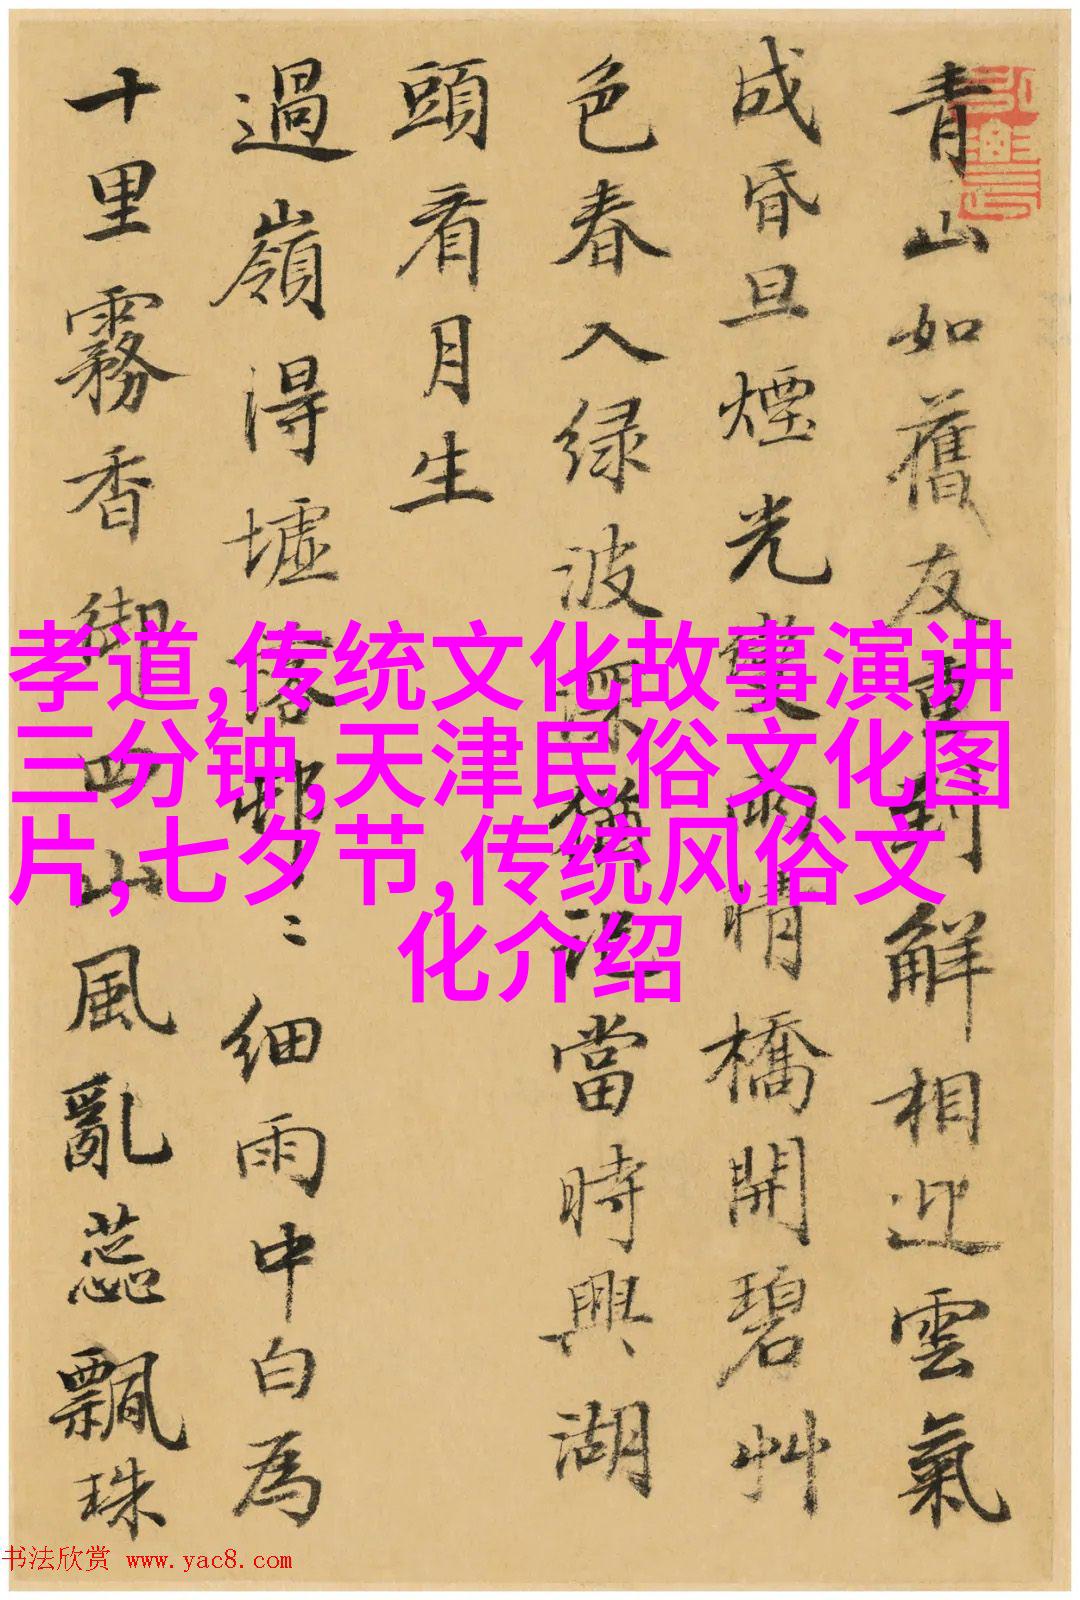 青山如舊友重對解相迎雲氣
成昏旦煙光變雨晴橋開碧艸
色春入绿波深猶當時興湖
頭看月生
過嶺得墟落邨〻細雨中白為
十里霧香御四山風亂蕊飄珠
孝道,传统文化故事演讲
三分钟,天津民俗文化图
片,七夕节,传统风俗文
化介绍
书法欣赏 www.yac8.com